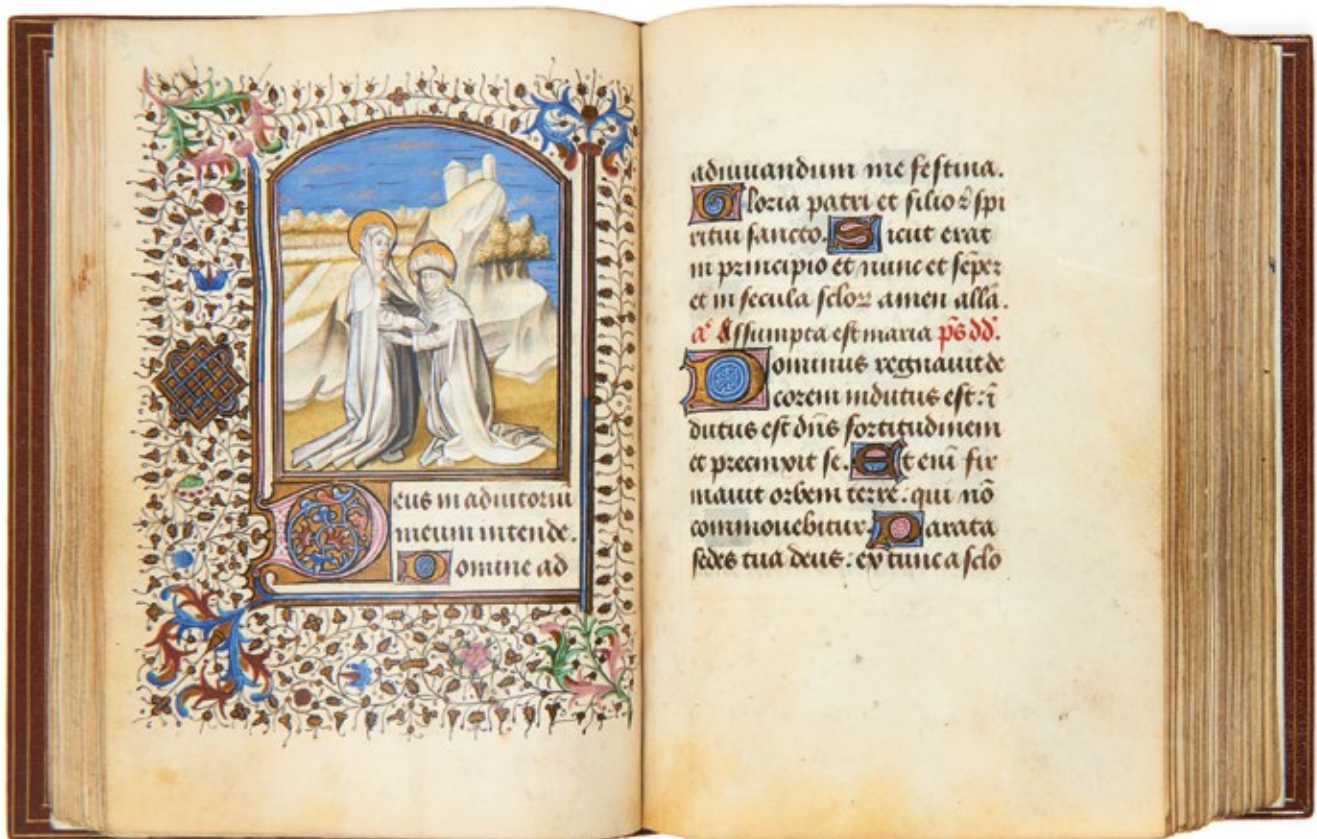 Deus in adiutoriū
meum intende.
Domine ad
adiuuandum me festina.
Gloria patri et filio ⁊ spi
ritui sancto. Sicut erat
in principio et nunc et sēper
et in secula sclōꝝ amen allā.
aᵉ Assumpta est maria p̄s dd.
Dominus regnauit de
corem indutus est: ī
dutus est dn̄s fortitudinem
et precinxit se. Et enī fir
mauit orbem terre. qui nō
commouebitur. Parata
sedes tua deus: ex tunc a sclo